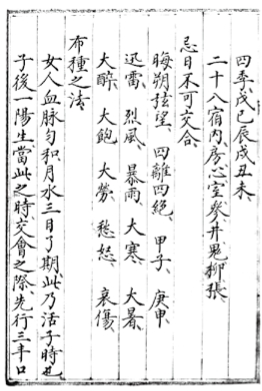 四季、戊己辰戌丑未、
二十八宿内、房心室参、井鬼柳張
忌日不可交合、
晦朔弦望、四離四絶、甲子、庚申、
迅雷、烈風、暴雨、大寒、大暑、
大醉、大飽、大勞、愁怒、哀傷、
布種之法
女人血脉勻和、月水三日了期、此乃活子時也
子後一陽生、當此之時、交會之際、先行三丰口